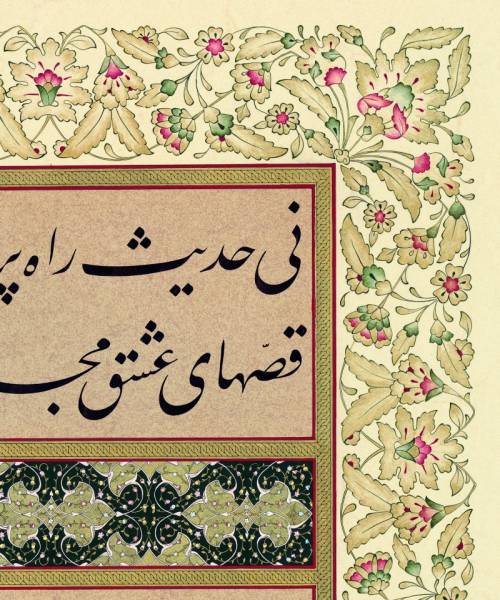 نی حدیث راه پر
قصّهای عشق مجـ